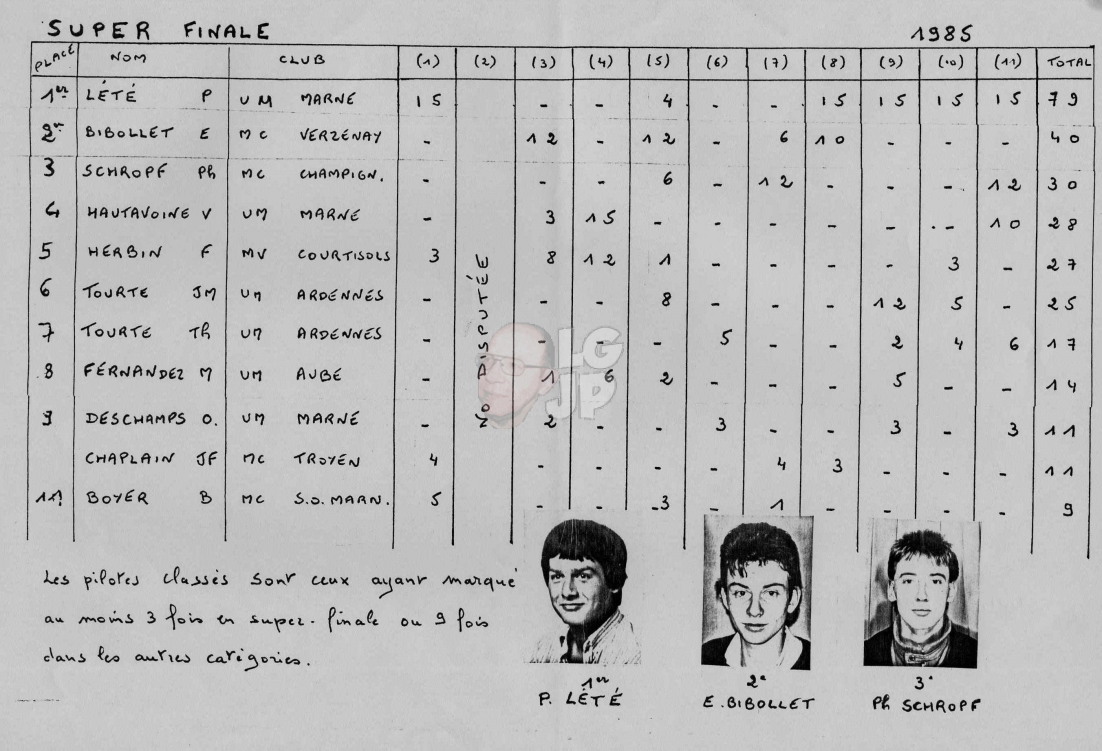 SUPER FINALE 1985
PLACE NOM CLUB (1) (2) (3) (4) (5) (6) (7) (8) (9) (10) (11) TOTAL
1er LÉTÉ P UM MARNE 15 - - 4 - - 15 15 15 15 79
2e BIBOLLET E MC VERZENAY - 12 - 12 - 6 10 - - - 40
3 SCHROPF Ph MC CHAMPIGN. - - - 6 - 12 - - - 12 30
4 HAUTAVOINE V UM MARNE - 3 15 - - - - - - 10 28
5 HERBIN F MV COURTISOLS 3 8 12 1 - - - - 3 - 27
6 TOURTE JM UM ARDENNES - - - 8 - - - 12 5 - 25
7 TOURTE Th UM ARDENNES - - - - 5 - - 2 4 6 17
8 FERNANDEZ M UM AUBE - 1 6 2 - - - 5 - - 14
9 DESCHAMPS O. UM MARNE - 2 - - 3 - - 3 - 3 11
CHAPLAIN JF MC TROYEN 4 - - - - 4 3 - - - 11
11 BOYER B MC S.O. MARN. 5 - - 3 - 1 - - - - 9
NO DISPUTÉE
LG
JP
Les pilotes classés sont ceux ayant marqué
au moins 3 fois en super-finale ou 9 fois
dans les autres catégories.
1er 2e 3e
P. LÉTÉ E. BIBOLLET Ph SCHROPF